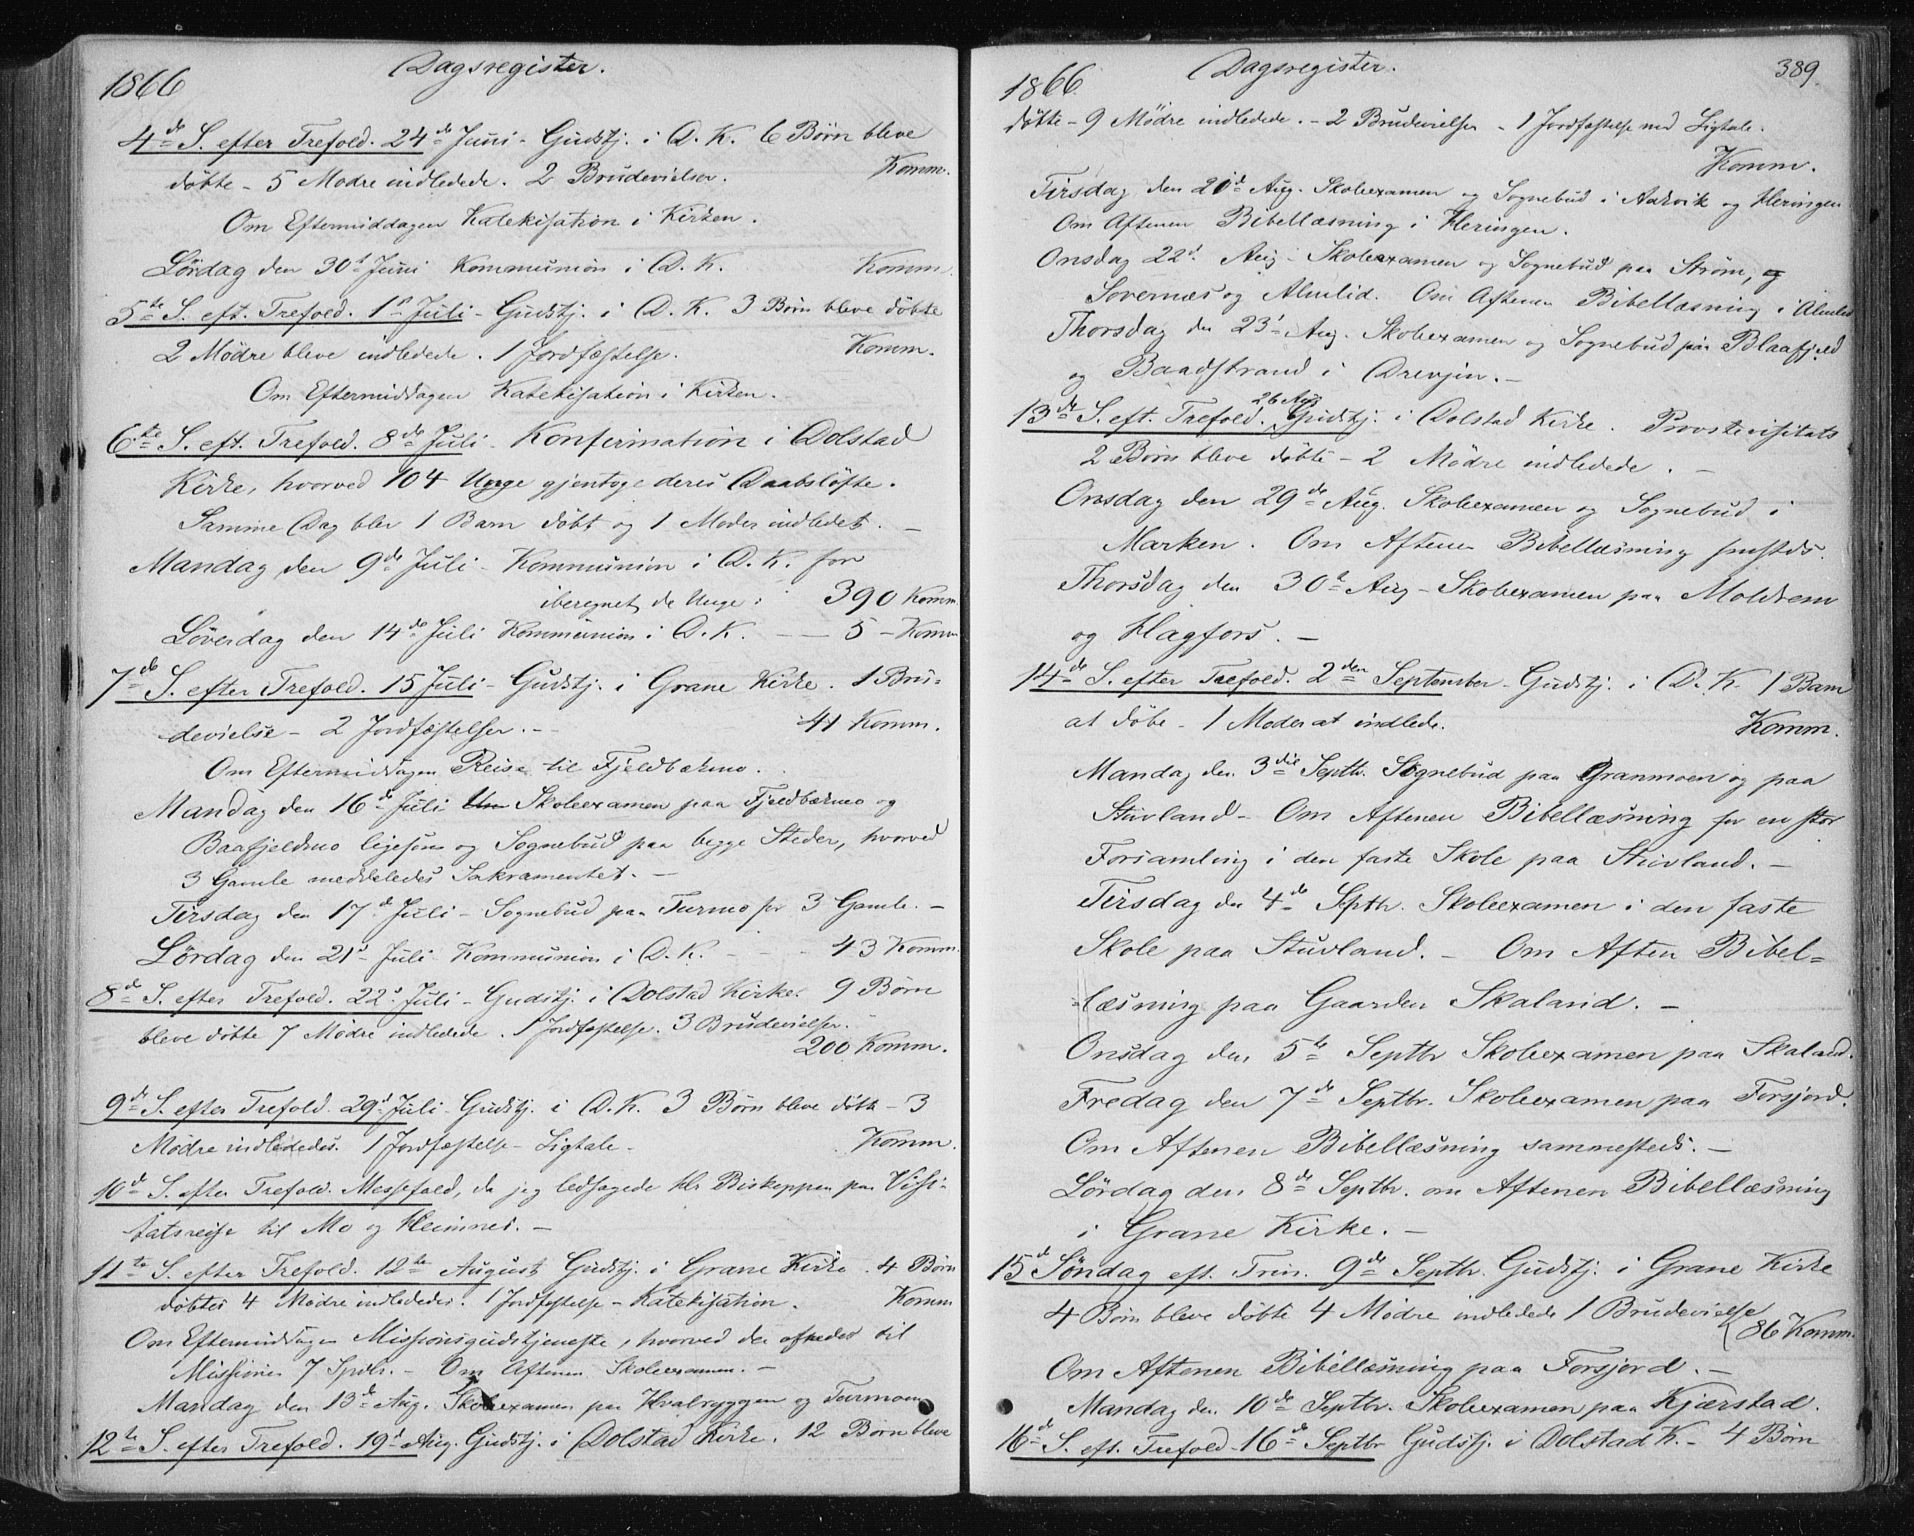 1866 Dagsregister.
4de S. efter Trefold. 24de Juni - Gudstj. i D. K. 6 Børn bleve
døbte - 5 Mødre indledede. 2 Brudevielser. Komm.
Om Eftermiddagen Katekisation i Kirken.
Lørdag den 30te Juni Kommunion i D. K. Komm.
5te S. eft. Trefold. 1ste Juli - Gudstj. i D. K. 3 Børn bleve døbte
2 Mødre bleve indledede. 1 Jordfæstelse. Komm.
Om Eftermiddagen Katekisation i Kirken.
6te S. eft. Trefold. 8de Juli - Konfirmation i Dolstad
Kirke, hvorved 104 Unge gjentoge deres Daabsløfte.
Samme Dag blev 1 Barn døbt og 1 Moder indledet. -
Mandag den 9de Juli - Kommunion i D. K. for
iberegnet de Unge: 390 Komm.
Løverdag den 14de Juli Kommunion i D. K. - - 5 - Komm
7de S. efter Trefold. 15 Juli - Gudstj. i Grane Kirke. 1 Bru-
devielse - 2 Jordfæstelser. - 41 Komm.
Om Eftermiddagen Reise til Fjeldbækmo.
Mandag den 16de Juli Skoleexamen paa Fjeldbækmo og
Baafjeldmo ligesom og Sognebud paa begge Steder, hvorved
3 Gamle meddeledes Sakramentet. -
Tirsdag den 17de Juli - Sognebud paa Turmo for 3 Gamle. -
Lørdag den 21de Juli Kommunion i D. K. - - - 43 Komm.
8de S. efter Trefold. 22de Juli - Gudstj. i Dolstad Kirke. 9 Børn
bleve døbte 7 Mødre indledede. 1 Jordfæstelse. 3 Brudevielser.
200 Komm.
9de S. efter Trefold. 29de Juli - Gudstj. i D. K. 3 Børn bleve døbte - 3
Mødre indlededes. 1 Jordfæstelse - Ligtale - Komm.
10de S. efter Trefold. Messefald, da jeg ledsagede Hr Biskoppen paa Visi-
tatsreise til Mo og Hemnes. -
11te S. efter Trefold. 12te August Gudstj. i Grane Kirke. 4 Børn
døbtes 4 Mødre indlededes. 1 Jordfæstelse - Katekisation. Komm
Om Eftermiddagen Missionsgudstjeneste, hvorved der ofredes til
Missionen 7 Spdlr. - Om Aftenen Skoleexamen. -
Mandag den 13de Aug. Skoleexamen paa Hvalryggen og Turmoen
12te S. efter Trefold. 19de Aug. Gudstj. i Dolstad Kirke. 12 Børn bleve
1866 Dagsregister. 389.
døbte - 9 Mødre indledede. - 2 Brudevielser - 1 Jordfæstelse med Ligtale.
Komm.
Tirsdag den 21de Aug. Skoleexamen og Sognebud i Aakvik og Heringen
Om Aftenen Bibellæsning i Heringen.
Onsdag 22de Aug - Skoleexamen og Sognebud paa Strøm, og
Sovernæs og Almlid. Om Aftenen Bibellæsning i Almlid
Thorsdag den 23de Aug. Skolexamen og Sognebud paa Blaafjeld
og Baadstrand i Drevjen. -
13de S. eft. Trefold. 26 Aug Gudstj. i Dolstad Kirke. Provstevisitats
2 Børn bleve døbte - 2 Mødre indledede. -
Onsdag den 29de Aug. Skoleexamen og Sognebud i
Marken. Om Aftenen Bibellæsning sammesteds.
Thorsdag den 30te Aug - Skoleexamen paa Moldrem
og Hagfors. -
14de S. efter Trefold. 2den September - Gudstj. i D. K. 1 Barn
at døbe - 1 Moder at indlede. Komm.
Mandag den 3die Septbr. Sognebud paa Granmoen og paa
Stuvland - Om Aftenen Bibellæsning for en stor
Forsamling i den faste Skole paa Stuvland. -
Tirsdag den 4de Septbr. Skoleexamen i den faste
Skole paa Stuvland. - Om Aften Bibel-
læsning paa Gaarden Skaland. -
Onsdag den 5te Septbr Skoleexamen paa Skaland.
Fredag den 7de Septbr. Skoleexamen paa Forsjord.
Om Aftenen Bibellæsning sammesteds. -
Lørdag den 8de Septbr. om Aftenen Bibellæsning
i Grane Kirke. -
15de Søndag eft. Trin. 9de Septbr. Gudstj. i Grane Kirke
4 Børn bleve døbte 4 Mødre indledede 1 Brudevielse
86 Komm.
Om Aftenen Bibellæsning paa Forsjord. -
Mandag den 10de Septbr. Skoleexamen paa Kjærstad.
16de S. eft. Trefold - 16de Septbr Gudstj. i Dolstad K. - 4 Børn